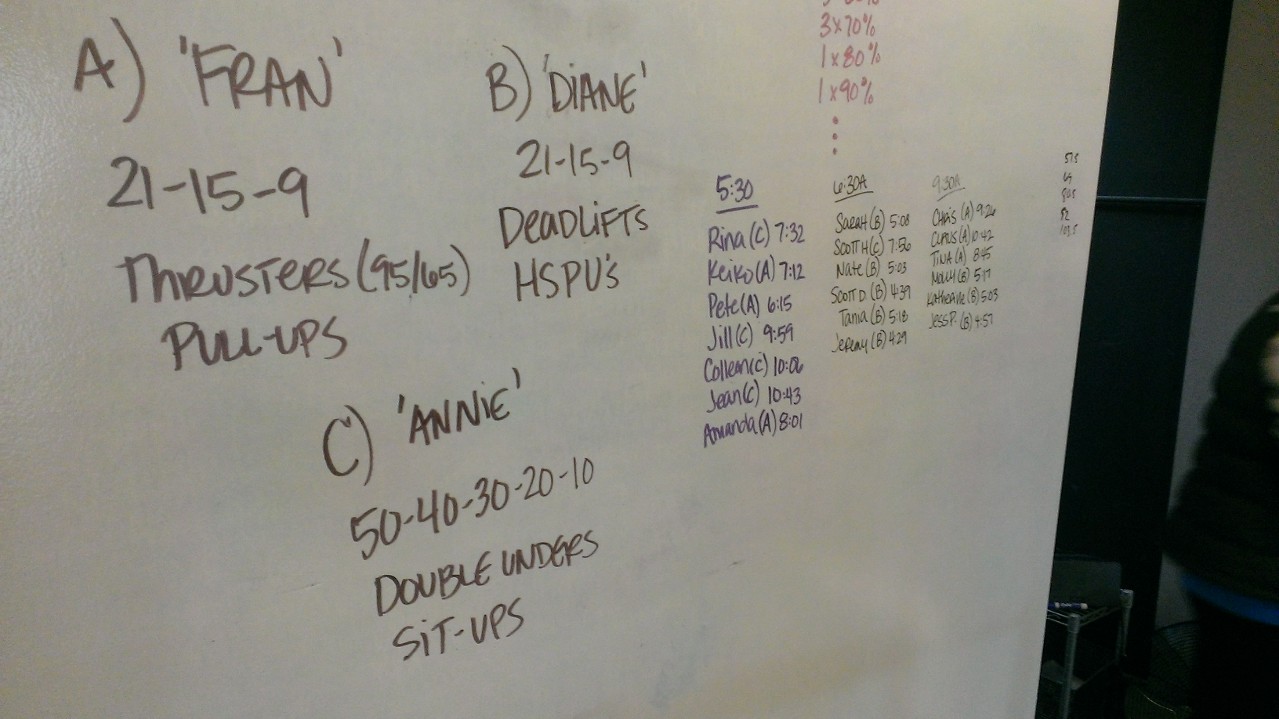 A) 'FRAN'
21-15-9
THRUSTERS (95/65)
PULL-UPS
B) 'DIANE'
21-15-9
DEADLIFTS
HSPU'S
C) 'ANNIE'
50-40-30-20-10
DOUBLE UNDERS
SIT-UPS
3x70%
1x80%
1x90%
5:30
Rina (C) 7:32
Keiko (A) 7:12
Pete (A) 6:15
Jill (C) 9:59
Colleen (C) 10:06
Jean (C) 10:43
Amanda (A) 8:01
6:30A
SARAH (B) 5:08
SCOTT H (C) 7:56
Nate (B) 5:03
SCOTT D (B) 4:39
Tania (B) 5:18
Jeremy (B) 4:29
9:30A
CHRIS (A) 9:26
(A) 10:42
TINA (A) 8:45
MOLLY (B) 5:17
KATHERINE (B) 5:03
JESS P. (B) 4:57